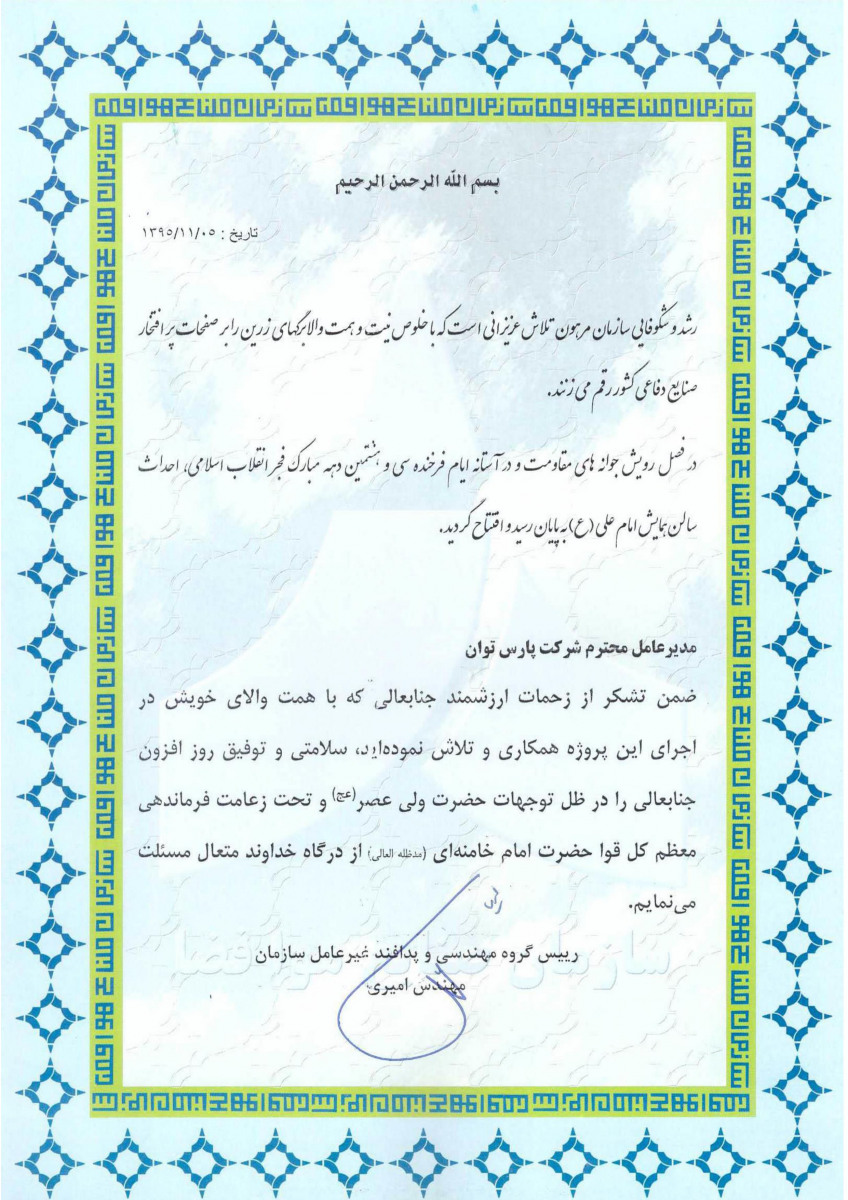 سازمان صنایع هوافضا سازمان صنایع هوافضا سازمان صنایع هوافضا
بسم الله الرحمن الرحیم
تاریخ : ۱۳۹۵/۱۱/۰۵
رشد و شکوفایی سازمان مرهون تلاش عزیزانی است که با خلوص نیت و همت والا برگهای زرین را بر صفحات پر افتخار
صنایع دفاعی کشور رقم می زنند.
در فصل رویش جوانه های مقاومت و در آستانه ایام فرخنده سی و هشتمین دهه مبارک فجر انقلاب اسلامی، احداث
سالن همایش امام علی (ع) به پایان رسید و افتتاح گردید.
مدیرعامل محترم شرکت پارس توان
ضمن تشکر از زحمات ارزشمند جنابعالی که با همت والای خویش در
اجرای این پروژه همکاری و تلاش نموده‌اید، سلامتی و توفیق روز افزون
جنابعالی را در ظل توجهات حضرت ولی عصر(عج) و تحت زعامت فرماندهی
معظم کل قوا حضرت امام خامنه‌ای (مدظله العالی) از درگاه خداوند متعال مسئلت
می‌نمایم.
رییس گروه مهندسی و پدافند غیرعامل سازمان
مهندس امیری
سازمان صنایع هوا فضا